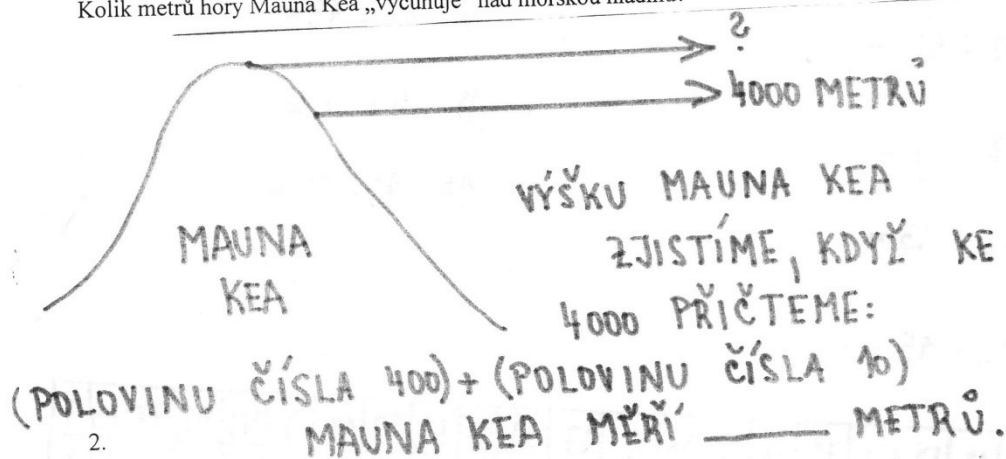 Kolik metrů hory Mauna Kea „vyčuhuje“ nad mořskou hladinu?
?
4000 METRŮ
VÝŠKU MAUNA KEA
MAUNA
KEA
ZJISTÍME, KDYŽ KE
4000 PŘIČTEME:
(POLOVINU ČÍSLA 400) + (POLOVINU ČÍSLA 10)
2.
MAUNA KEA MĚŘÍ ______ METRŮ.